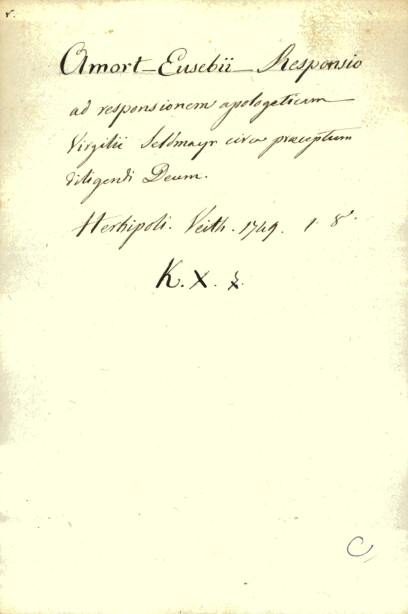 r.
Amort - Eusebii - Responsio
ad responsionem apologeticam
Virgilii Seldmayr circa præceptum
diligendi Deum.
Herbipoli. Veith. 1749. 1. 8°.
K. X.
C